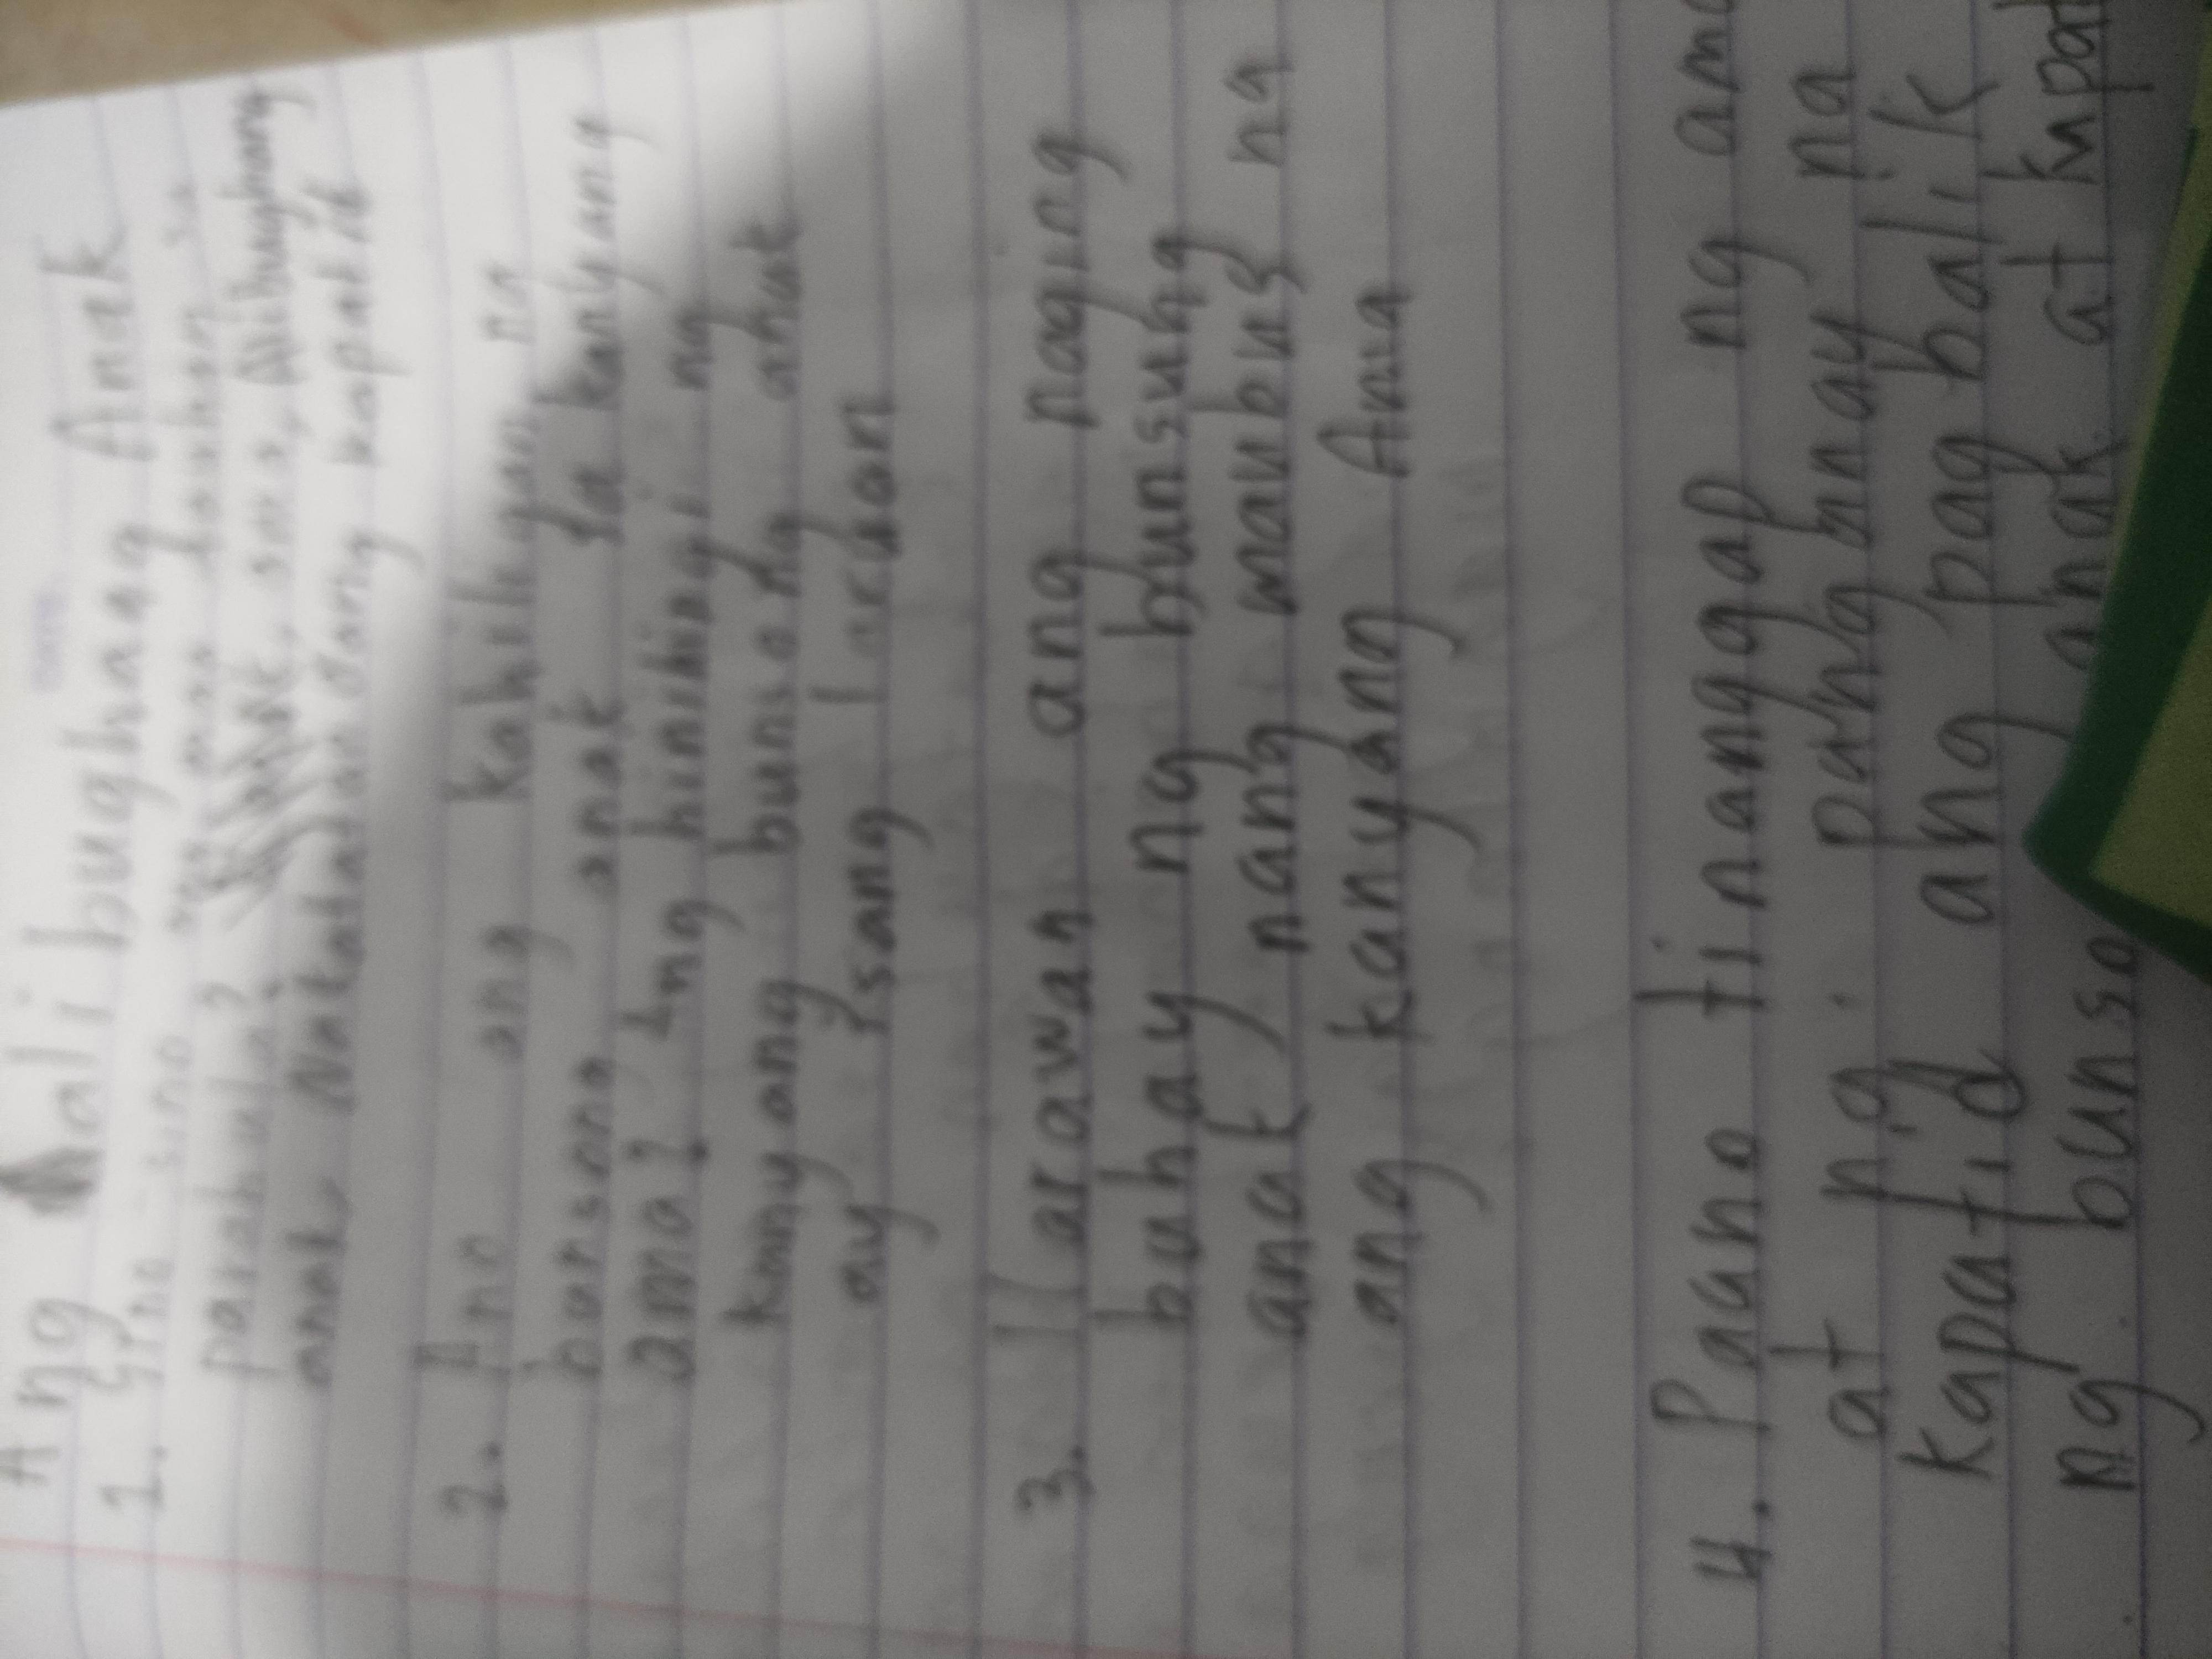 Ang Alibughang Anak
1. Sino-sino ang mga tauhan sa
parabula? ama, Alibughang
anak, Nakatatandang kapatid
2. Ano ang kahiligan ng
bunsong anak sa kanyang
ama? Ang hinihingi ng
kanyang bunsong anak
ay isang
3. Ilarawan ang naging
buhay ng bunsung
anak nang maubus na
ang kanyang Ama
4. Paano tinanggap ng ama
at ng panganay na
kapatid ang pagbalik
ng anak at